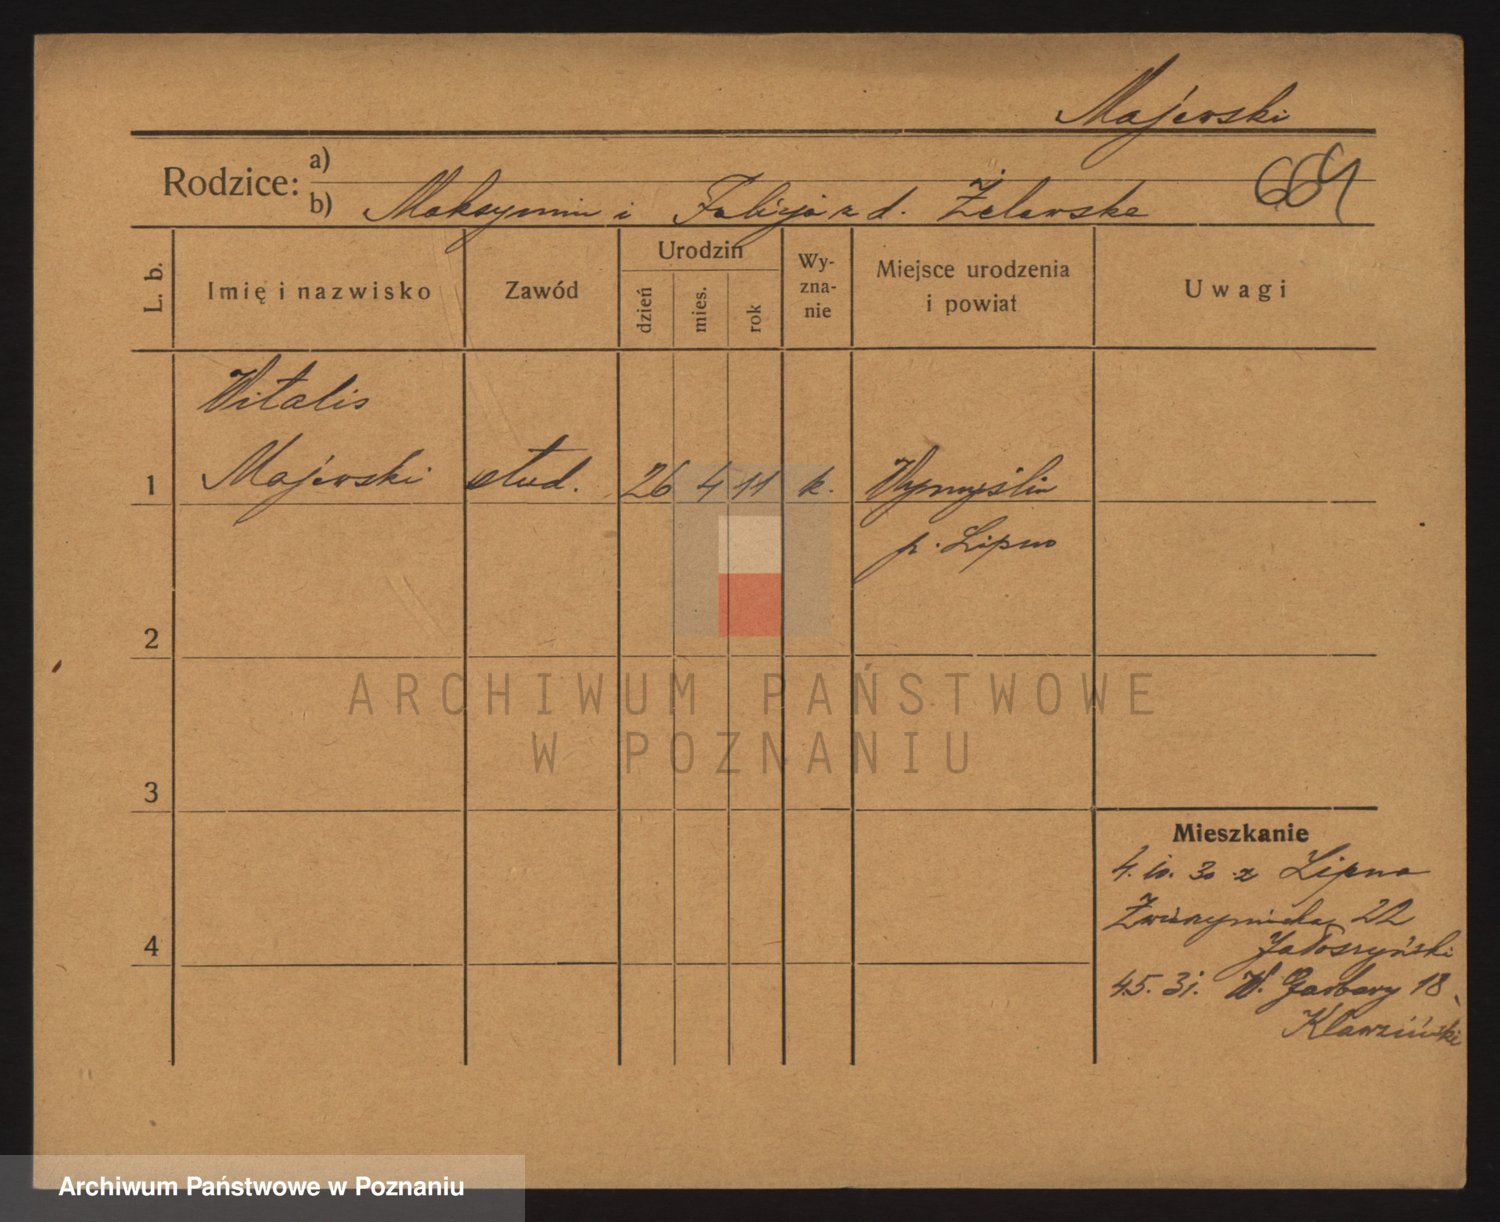 Majewski
Rodzice:
a)
b) Maksymin i Felicja z d. Żelewska
664
L. b.
Imię i nazwisko
Zawód
Urodzin
dzień
mies.
rok
Wy-
zna-
nie
Miejsce urodzenia
i powiat
Uwagi
Witalis
1 Majewski stud. 26 4 11 k. Wymyślin
p. Lipno
2
3
4
Mieszkanie
4. 10. 30 z Lipna
Zwierzyniecka 22
Jałoszyński
4.5. 31. W. Garbary 18
ARCHIWUM PAŃSTWOWE
W POZNANIU
Archiwum Państwowe w Poznaniu